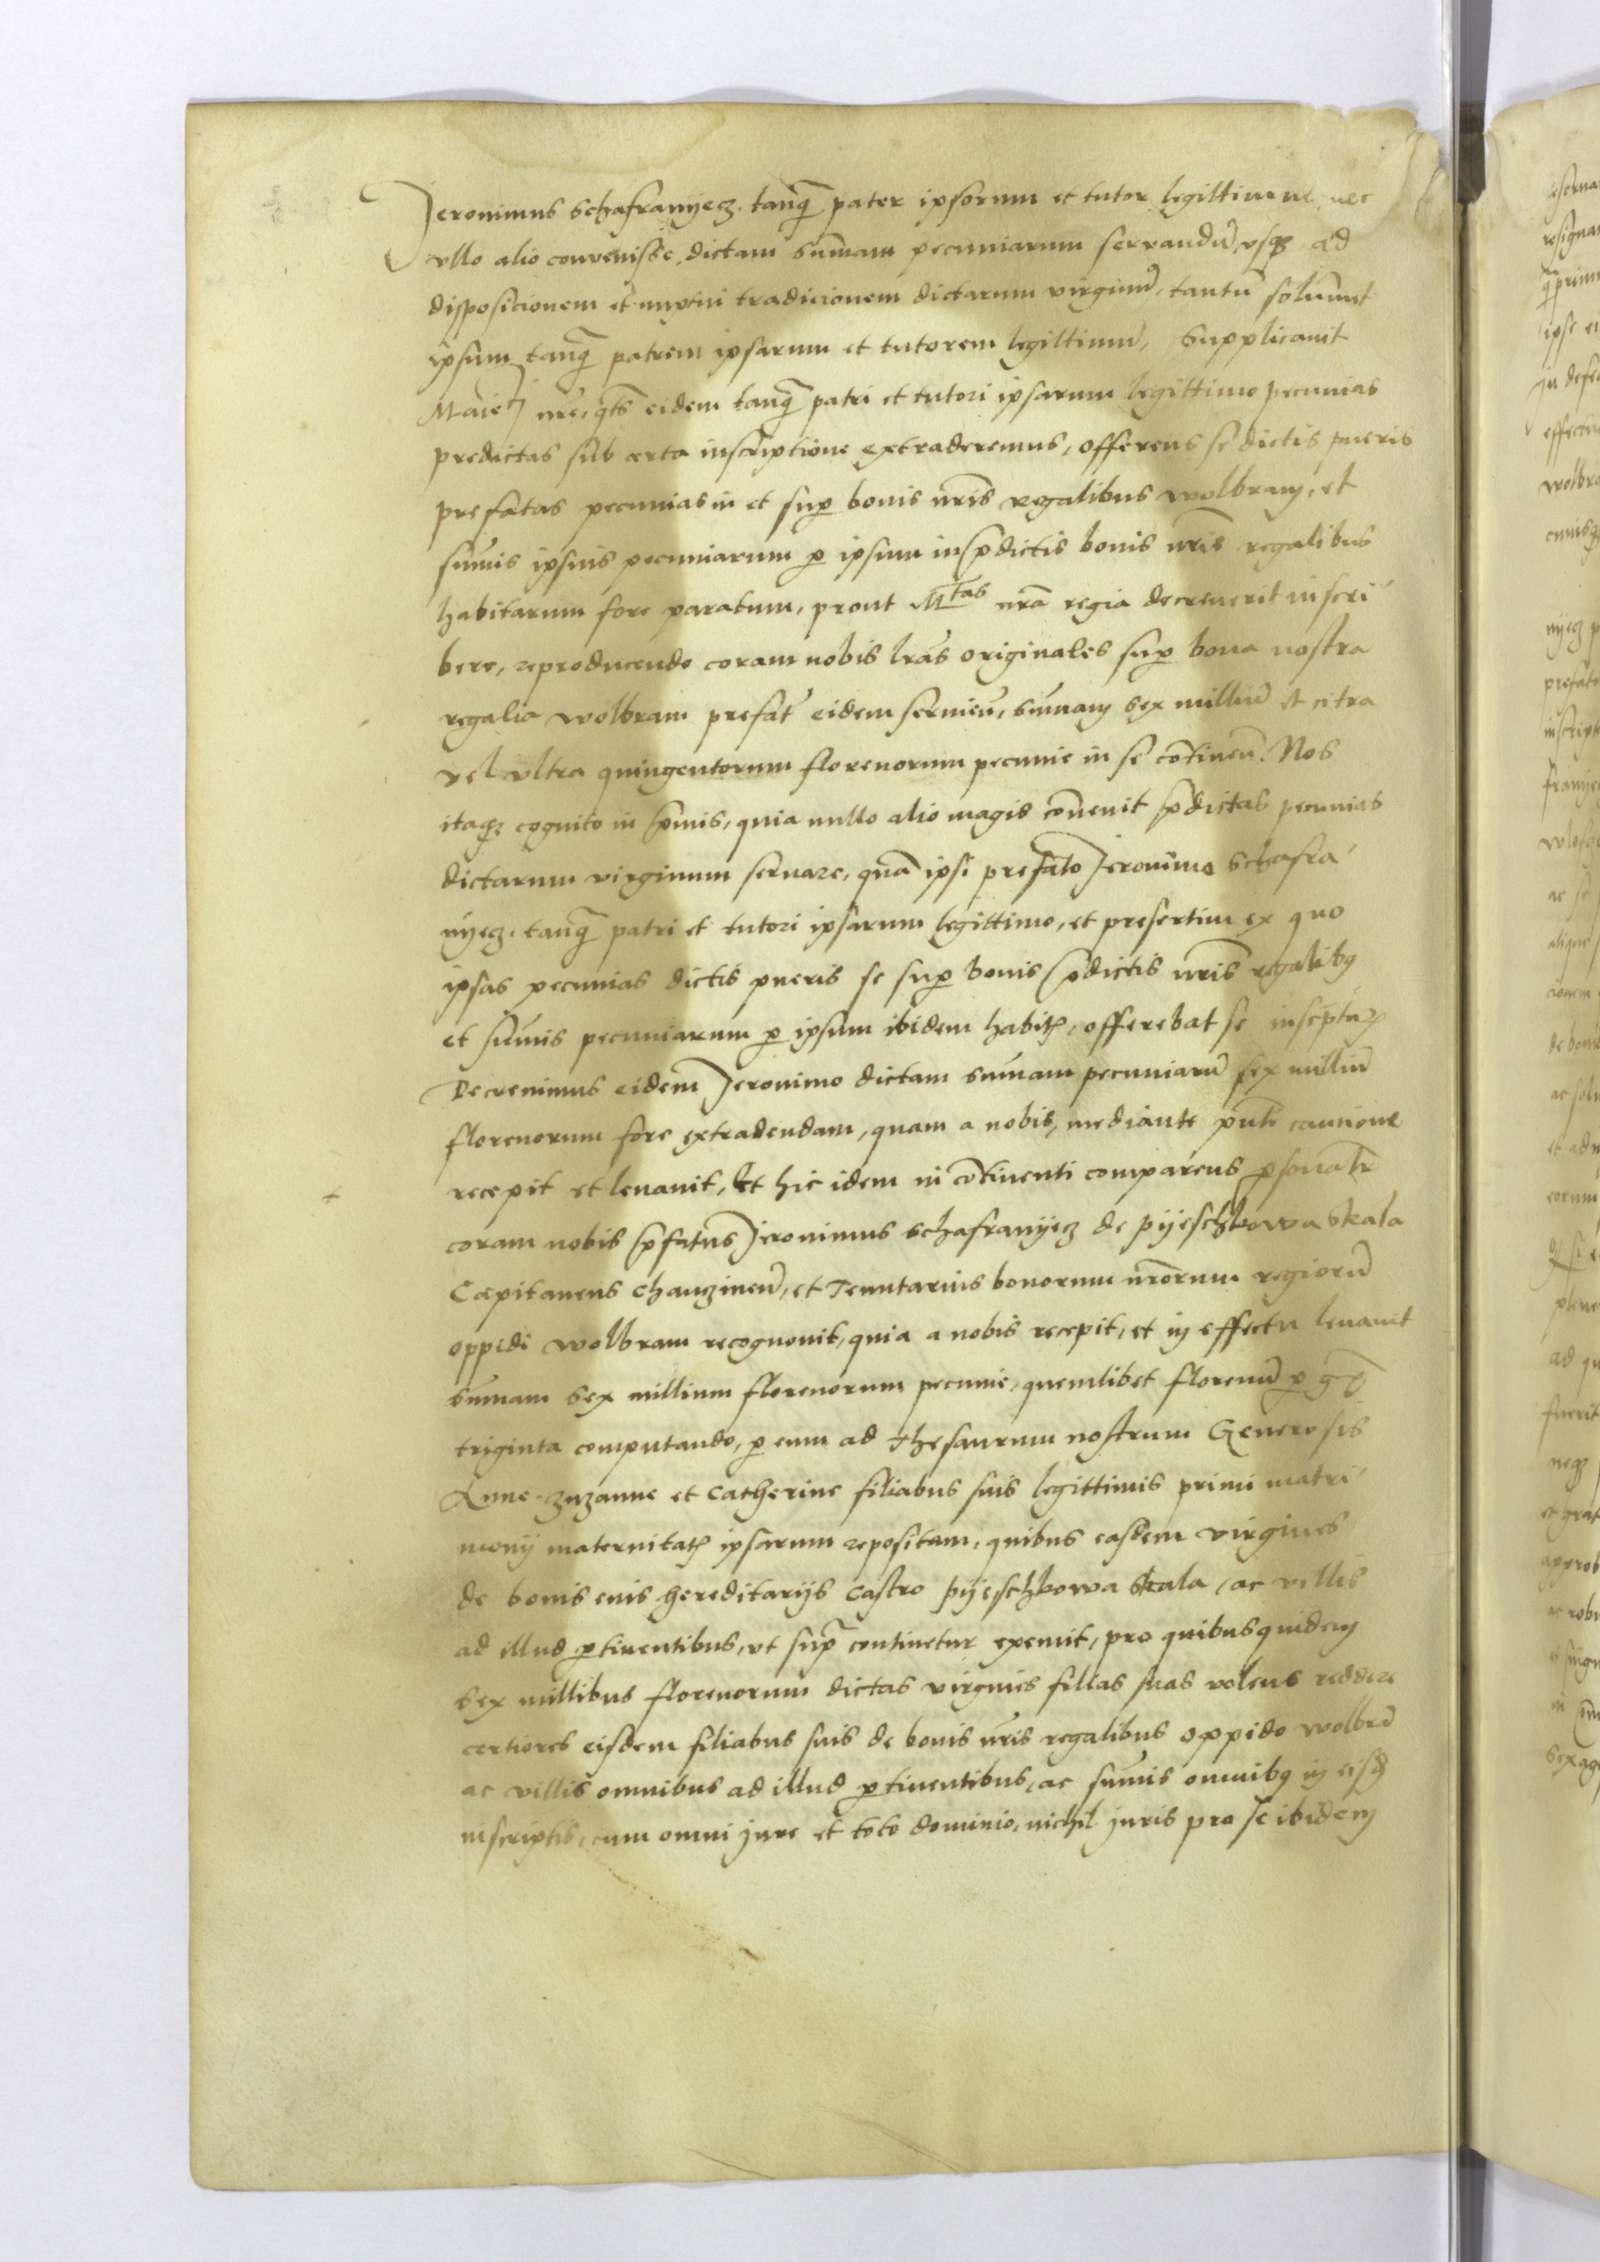 Jeronimus Schafranyecz, tanq̃ pater ipsorum et tutor legittimus nec
vllo alio convenisse, dictam sum̃am pecuniarum servandũ, vsqȝ ad
disposicionem et nuptui tradicionem dictarum virginũ, tantũ solum̃et
ipsum tanq̃ patrem ipsarum et tutorem legittimũ, Supplicauit
Maieti nr̃e, qts eidem tanq̃ patri et tutori ipsarum legittimo pecunias
predictas sub certa inscriptione extraderemus, offerens se dictis pueris
prefatas pecunias in et suꝑ bonis nr̃is regalibus wolbram, et
sum̃is ipsius pecuniarum ꝑ ipsum in p̃dictis bonis nr̃is regalibus
habitarum fore paratum, prout Mtas nr̃a regia decreuerit inscri
bere, reproducendo coram nobis lr̃as originales suꝑ bona nostra
regalia wolbram prefat̃ eidem servieñ, sum̃am sex milliũ et citra
vel vltra quingentorum florenorum pecunie in se cõtineñ. Nos
itaqȝ cognito in p̃mis, quia nullo alio magis cõvenit p̃dictas pecunias
dictarum virginum seruare, quã ipsi prefato Jeronimo Schafra
nyecz, tanq̃ patri et tutori ipsarum legittimo, et presertim ex quo
ipsas pecunias dictis pueris se suꝑ bonis p̃dictis nr̃is regalibꝰ
et sum̃is pecuniarum ꝑ ipsum ibidem habitꝝ, offerebat se inscptuꝝ
Decreuimus eidem Jeronimo dictam sum̃am pecuniarũ sex milliũ
florenorum fore extradendam, quam a nobis, mediante pñti caucione
recepit et leuauit, Et hic idem in cõtinenti comparens ꝑsonalr̃
coram nobis p̃fatus Jeronimus Schafranyecz de pyeschkowa Skala
Capitaneus Chanzineñ, et Tenutarius bonorum nr̃orum regiorũ
oppidi wolbram recognouit, quia a nobis recepit, et in effectu leuauit
sum̃am sex millium florenorum pecunie, quemlibet florenũ ꝑ gᷓ
triginta computando, ꝑ eum ad thesaurum nostrum Generosis
Anne, zuzanne et Catherine filiabus suis legittimis primi matri
monij maternitatꝭ ipsarum repositam, quibus easdem virgines
de bonis suis hereditarijs castro pyeschkowa Skala, ac villis
ad illud ꝑtinentibus, vt sup̃ continetur exemit, pro quibusquidem
sex millibus florenorum dictas virgines filias suas volens reddere
certiores eisdem filiabus suis de bonis nr̃is regalibus oppido wolbrã
ac villis omnibus ad illud ꝑtinentibus, ac sum̃is omnibꝰ in eisd̃
inscriptis, cum omni jure et toto dominio, nichil juris pro se ibidem